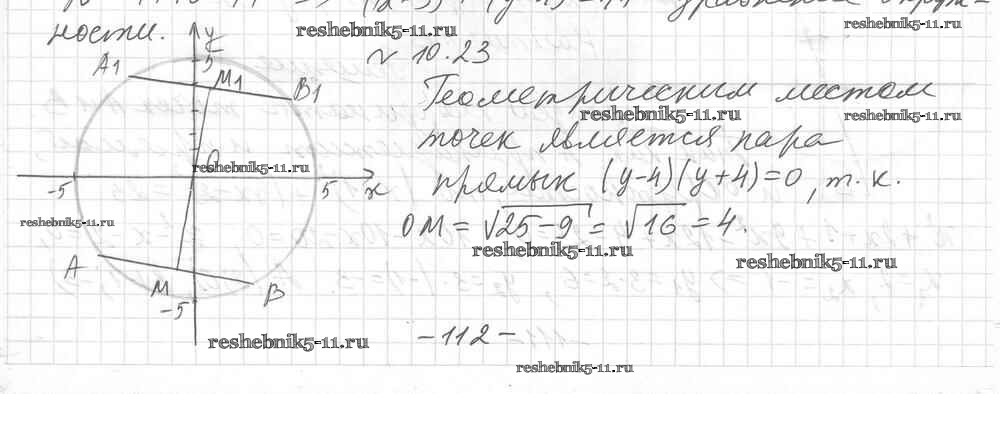 ности.
№ 10.23
Геометрическим местом
точек является пара
прямых (y-4)(y+4)=0, т.к.
OM = √25-9 = √16 = 4.
y
5
A1
M1
B1
O
-5
5
x
A
M
B
-5
-112-
reshebnik5-11.ru
reshebnik5-11.ru
reshebnik5-11.ru
reshebnik5-11.ru
reshebnik5-11.ru
reshebnik5-11.ru
reshebnik5-11.ru
reshebnik5-11.ru
reshebnik5-11.ru
reshebnik5-11.ru